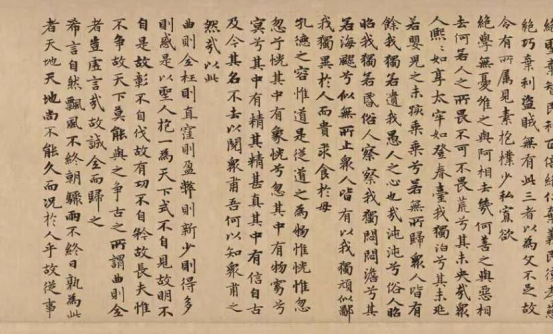 絕巧棄利盜賊無有此三者以為文不足故
令有所屬見素抱樸少私寡欲
絕學無憂唯之與阿相去幾何善之與惡相
去何若人之所畏不可不畏荒兮其未央哉眾
人熙〻如享太牢如登春臺我獨泊兮其未兆
若嬰兒之未孩乘乘兮若無所歸眾人皆有
餘我獨若遺我愚人之心也哉沌沌兮俗人昭
昭我獨若昏俗人察察我獨悶悶澹兮其
若海飂兮似無所止眾人皆有以我獨頑似鄙
我獨異於人而貴求食於母
孔德之容惟道是從道之為物惟恍惟忽
忽兮恍其中有象恍兮忽其中有物窈兮
冥兮其中有精其精甚真其中有信自古
及今其名不去以閱眾甫吾何以知眾甫之
然哉以此
曲則全枉則直窪則盈弊則新少則得多
則惑是以聖人抱一為天下式不自見故明不
自是故彰不自伐故有功不自矜故長夫惟
不爭故天下莫能與之爭古之所謂曲則全
者豈虛言哉故誠全而歸之
希言自然飄風不終朝驟雨不終日孰為此
者天地天地尚不能久而況於人乎故從事